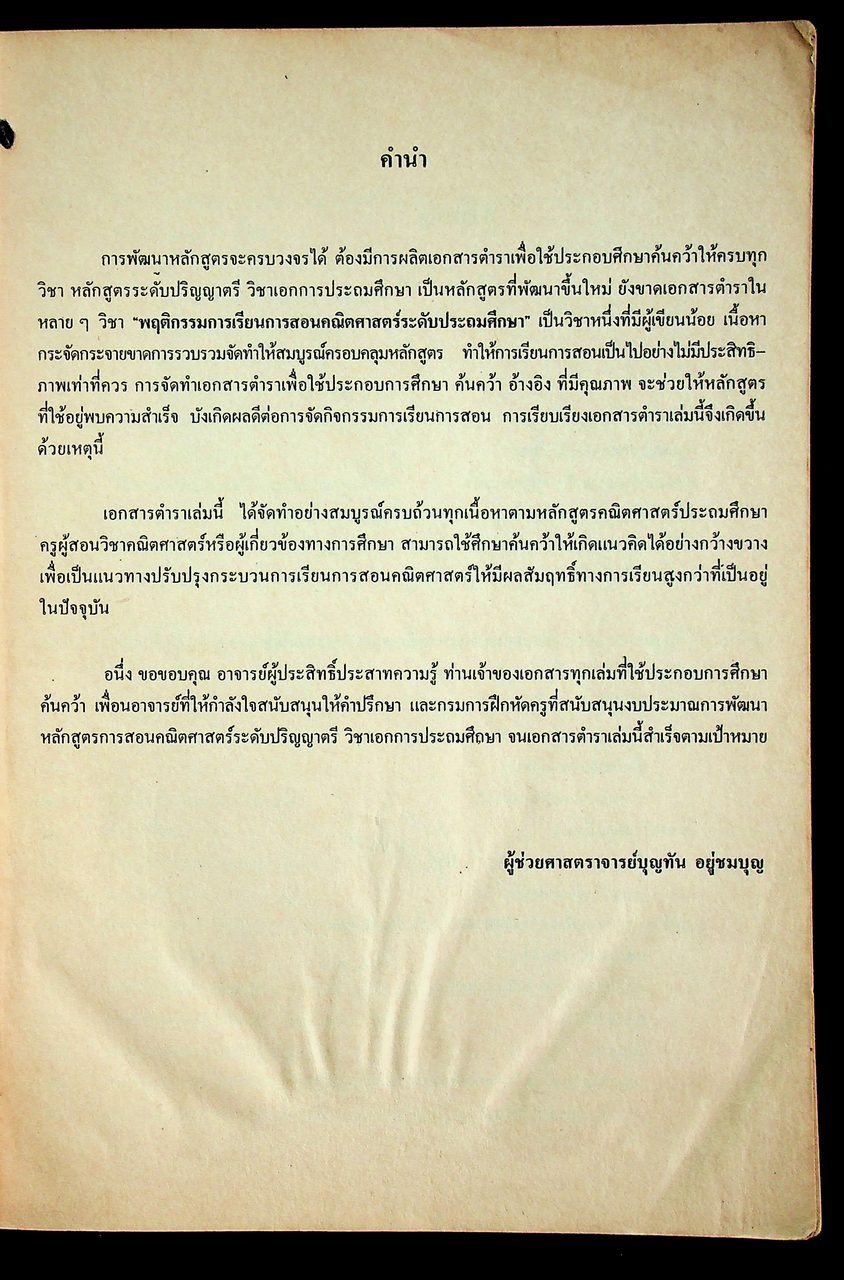 คำนำ
การพัฒนาหลักสูตรจะครบวงจรได้ ต้องมีการผลิตเอกสารตำราเพื่อใช้ประกอบศึกษาค้นคว้าให้ครบทุก
วิชา หลักสูตรระดับปริญญาตรี วิชาเอกการประถมศึกษา เป็นหลักสูตรที่พัฒนาขึ้นใหม่ ยังขาดเอกสารตำราใน
หลาย ๆ วิชา “พฤติกรรมการเรียนการสอนคณิตศาสตร์ระดับประถมศึกษา” เป็นวิชาหนึ่งที่มีผู้เขียนน้อย เนื้อหา
กระจัดกระจายขาดการรวบรวมจัดทำให้สมบูรณ์ครอบคลุมหลักสูตร ทำให้การเรียนการสอนเป็นไปอย่างไม่มีประสิทธิ–
ภาพเท่าที่ควร การจัดทำเอกสารตำราเพื่อใช้ประกอบการศึกษา ค้นคว้า อ้างอิง ที่มีคุณภาพ จะช่วยให้หลักสูตร
ที่ใช้อยู่พบความสำเร็จ บังเกิดผลดีต่อการจัดกิจกรรมการเรียนการสอน การเรียบเรียงเอกสารตำราเล่มนี้จึงเกิดขึ้น
ด้วยเหตุนี้
เอกสารตำราเล่มนี้ ได้จัดทำอย่างสมบูรณ์ครบถ้วนทุกเนื้อหาตามหลักสูตรคณิตศาสตร์ประถมศึกษา
ครูผู้สอนวิชาคณิตศาสตร์หรือผู้เกี่ยวข้องทางการศึกษา สามารถใช้ศึกษาค้นคว้าให้เกิดแนวคิดได้อย่างกว้างขวาง
เพื่อเป็นแนวทางปรับปรุงกระบวนการเรียนการสอนคณิตศาสตร์ให้มีผลสัมฤทธิ์ทางการเรียนสูงกว่าที่เป็นอยู่
ในปัจจุบัน
อนึ่ง ขอขอบคุณ อาจารย์ผู้ประสิทธิ์ประสาทความรู้ ท่านเจ้าของเอกสารทุกเล่มที่ใช้ประกอบการศึกษา
ค้นคว้า เพื่อนอาจารย์ที่ให้กำลังใจสนับสนุนให้คำปรึกษา และกรมการฝึกหัดครูที่สนับสนุนงบประมาณการพัฒนา
หลักสูตรการสอนคณิตศาสตร์ระดับปริญญาตรี วิชาเอกการประถมศึกษา จนเอกสารตำราเล่มนี้สำเร็จตามเป้าหมาย
ผู้ช่วยศาสตราจารย์บุญทัน อยู่ชมบุญ